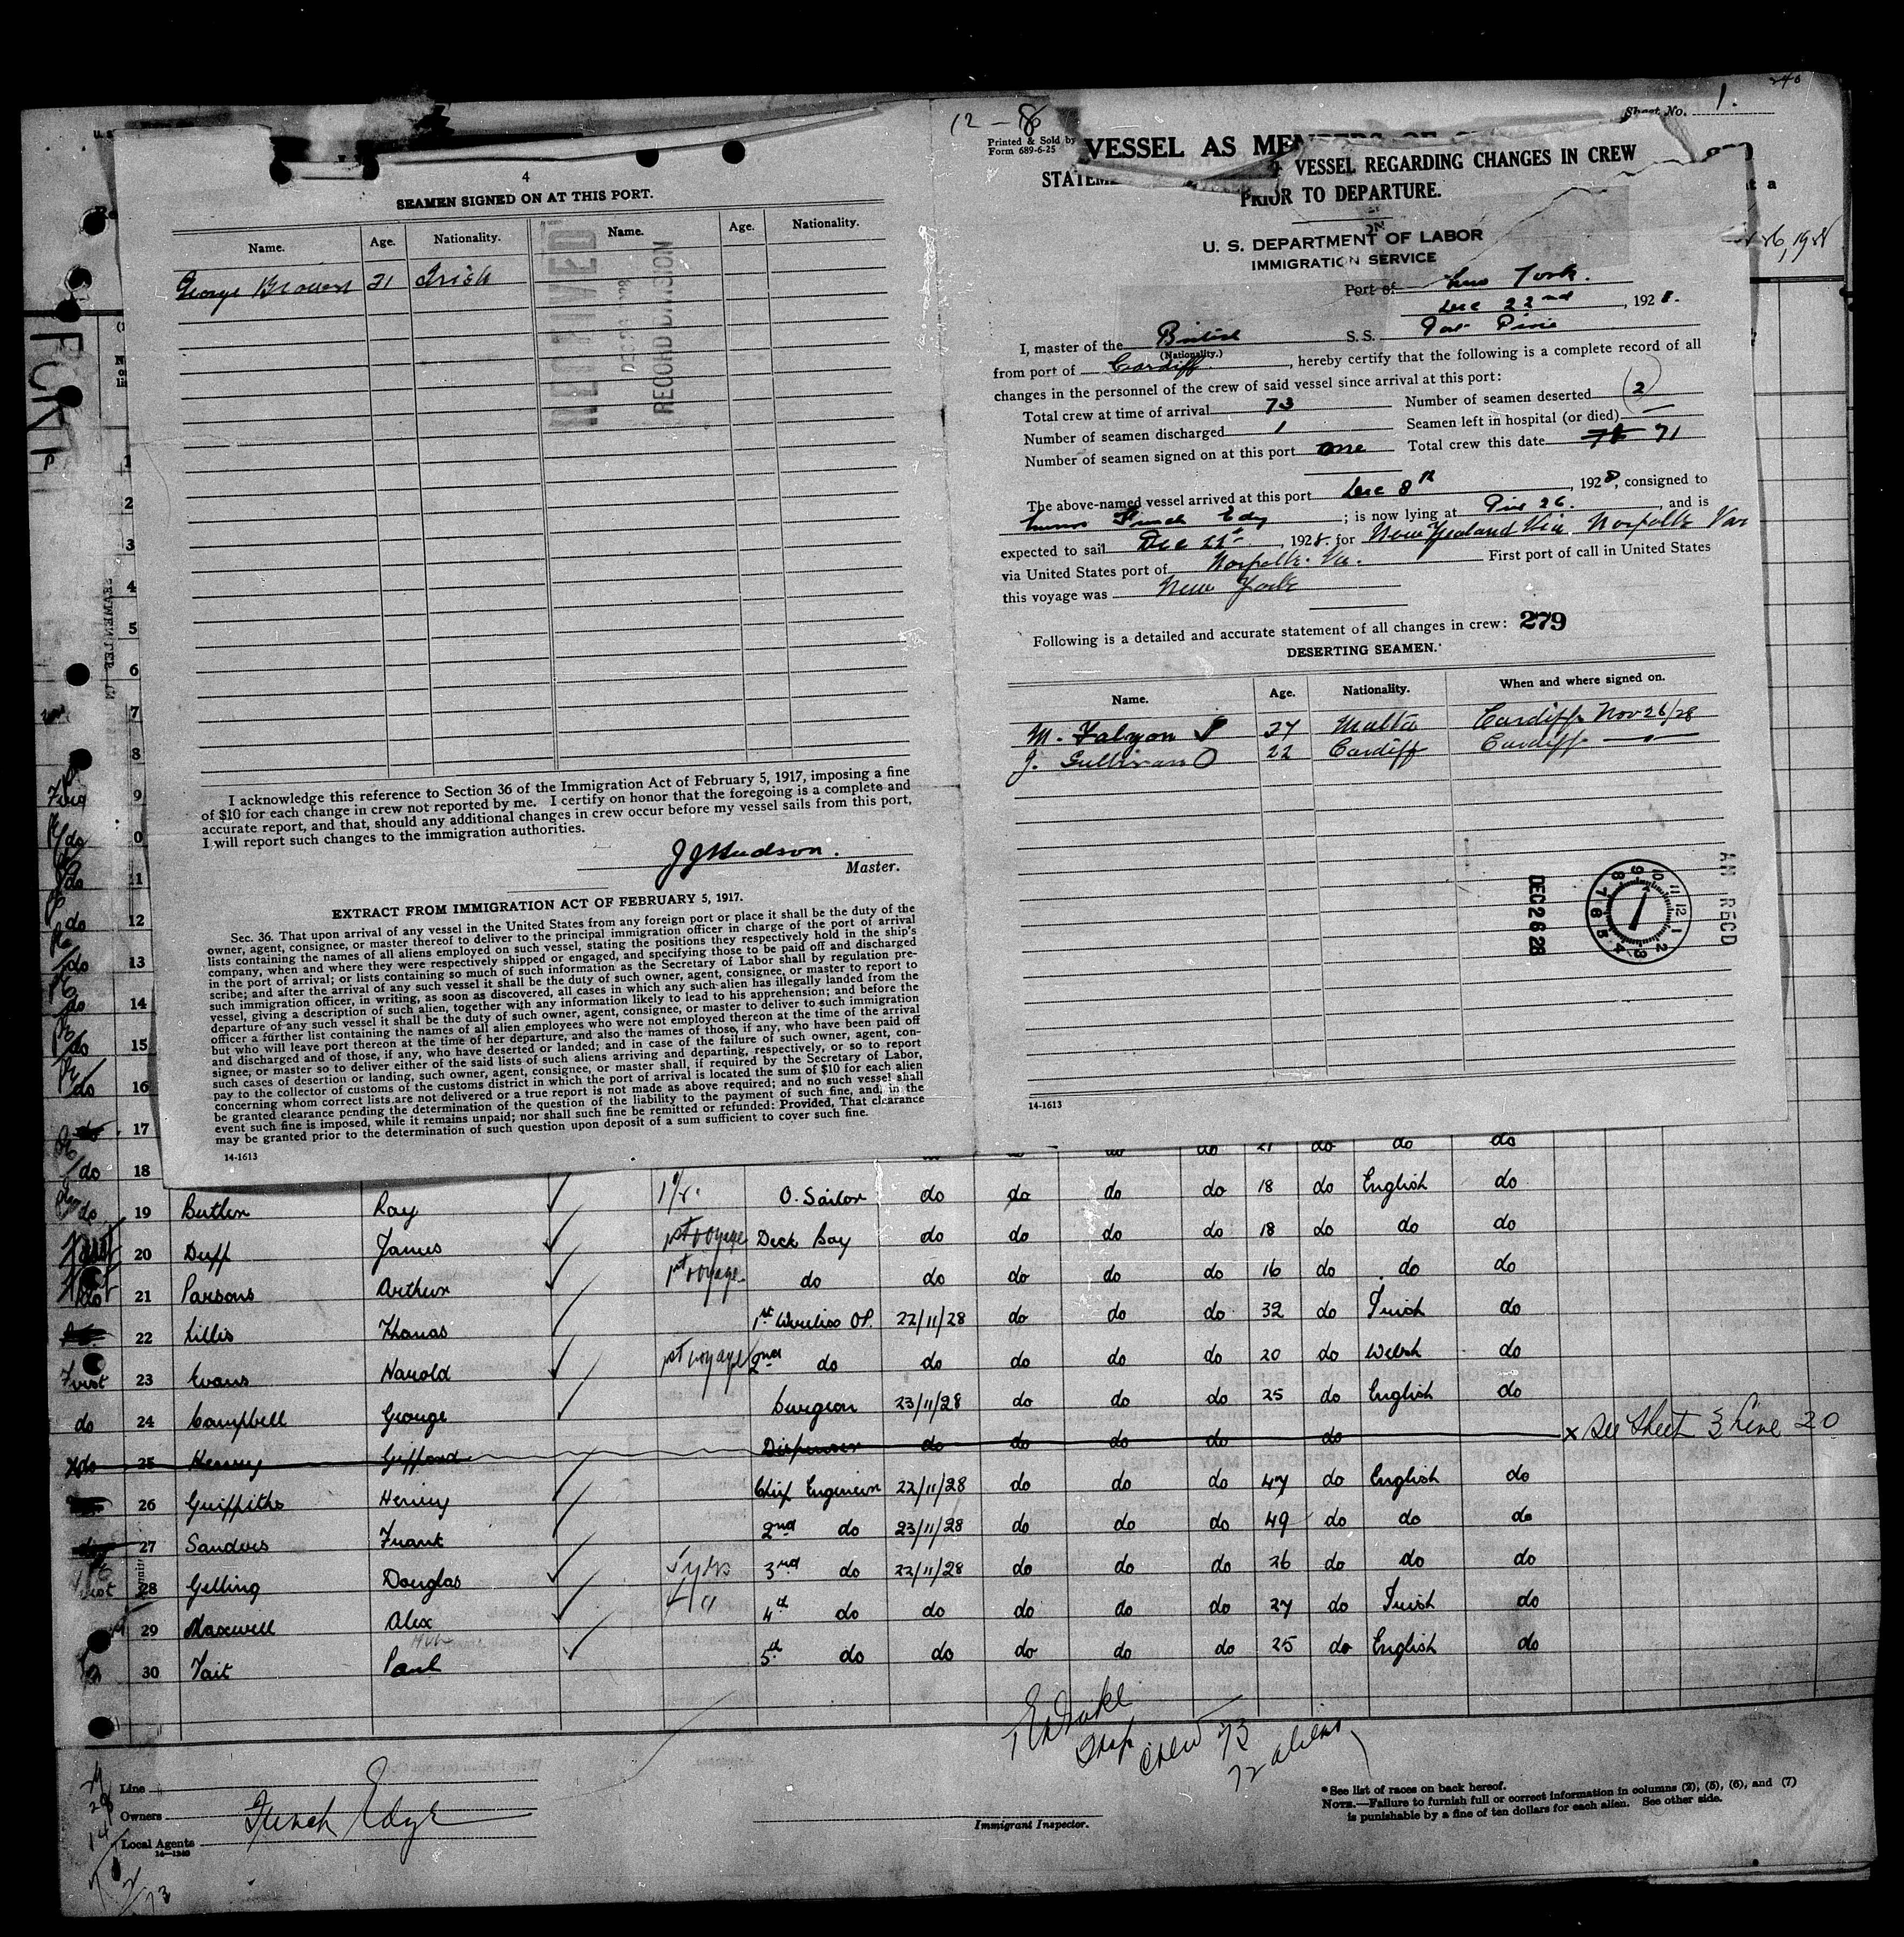 4
SEAMEN SIGNED ON AT THIS PORT.
Name. Age. Nationality. Name. Age. Nationality.
George Brown 21 Irish
RECEIVED
RECORD DIVISION
I acknowledge this reference to Section 36 of the Immigration Act of February 5, 1917, imposing a fine
of $10 for each change in crew not reported by me. I certify on honor that the foregoing is a complete and
accurate report, and that, should any additional changes in crew occur before my vessel sails from this port,
I will report such changes to the immigration authorities.
JJHudson.
Master.
EXTRACT FROM IMMIGRATION ACT OF FEBRUARY 5, 1917.
Sec. 36. That upon arrival of any vessel in the United States from any foreign port or place it shall be the duty of the
owner, agent, consignee, or master thereof to deliver to the principal immigration officer in charge of the port of arrival
lists containing the names of all aliens employed on such vessel, stating the positions they respectively hold in the ship's
company, when and where they were respectively shipped or engaged, and specifying those to be paid off and discharged
in the port of arrival; or lists containing so much of such information as the Secretary of Labor shall by regulation pre-
scribe; and after the arrival of any such vessel it shall be the duty of such owner, agent, consignee, or master to report to
such immigration officer, in writing, as soon as discovered, all cases in which any such alien has illegally landed from the
vessel, giving a description of such alien, together with any information likely to lead to his apprehension; and before the
departure of any such vessel it shall be the duty of such owner, agent, consignee, or master to deliver to such immigration
officer a further list containing the names of all alien employees who were not employed thereon at the time of the arrival
but who will leave port thereon at the time of her departure, and also the names of those, if any, who have been paid off
and discharged and of those, if any, who have deserted or landed; and in case of the failure of such owner, agent, con-
signee, or master so to deliver either of the said lists of such aliens arriving and departing, respectively, or so to report
such cases of desertion or landing, such owner, agent, consignee, or master shall, if required by the Secretary of Labor,
pay to the collector of customs of the customs district in which the port of arrival is located the sum of $10 for each alien
concerning whom correct lists are not delivered or a true report is not made as above required; and no such vessel shall
be granted clearance pending the determination of the question of the liability to the payment of such fine, and, in the
event such fine is imposed, while it remains unpaid; nor shall such fine be remitted or refunded: Provided, That clearance
may be granted prior to the determination of such question upon deposit of a sum sufficient to cover such fine.
14-1613
12-8
Sheet No. 1.
240
Printed & Sold by
Form 689-6-25
VESSEL AS
VESSEL REGARDING CHANGES IN CREW
PRIOR TO DEPARTURE.
U. S. DEPARTMENT OF LABOR
IMMIGRATION SERVICE
Port of New York.
Dec 22nd, 1928.
I, master of the British S. S. Port Pirie
(Nationality.)
from port of Cardiff, hereby certify that the following is a complete record of all
changes in the personnel of the crew of said vessel since arrival at this port:
Total crew at time of arrival 73 Number of seamen deserted 2
Number of seamen discharged 1 Seamen left in hospital (or died) —
Number of seamen signed on at this port one Total crew this date 71
The above-named vessel arrived at this port Dec 8th, 1928, consigned to
Funch Edye; is now lying at Pier 26., and is
expected to sail Dec 22, 1928 for New Zealand Via Norfolk Va
via United States port of Norfolk. Va. First port of call in United States
this voyage was New York
Following is a detailed and accurate statement of all changes in crew: 279
DESERTING SEAMEN.
Name. Age. Nationality. When and where signed on.
M. Falzon 27 Malta Cardiff Nov 26/28
J. Sullivan 22 Cardiff Cardiff — " —
DEC 26 28
AM RECD
14-1613
19 Butler Ray O. Sailor do do do do 18 do English do
do 20 Duff James 1st voyage Deck Boy do do do do 18 do do do
do 21 Parsons Arthur 1st voyage do do do do do 16 do do do
22 Lillis Thomas 1st Wireless OP. 22/11/28 do do do 32 do Irish do
First 23 Evans Harold 1st voyage 2nd do do do do do 20 do Welsh do
do 24 Campbell George Surgeon 23/11/28 do do do 25 do English do
do 25 Henry Gifford Dispenser do do do do do x See Sheet 3 Line 20
26 Griffiths Henry Chief Engineer 22/11/28 do do do 47 do English do
27 Sanders Frank 2nd do 23/11/28 do do do 49 do do do
28 Gelling Douglas 5 yrs 3rd do 22/11/28 do do do 26 do do do
29 Maxwell Alex 4 " 4th do do do do do 27 do Irish do
30 Tait Paul 5th do do do do do 25 do English do
Crew 73
72 aliens
Line
Owners
Local Agents Funch Edye
14-1240
Immigrant Inspector.
*See list of races on back hereof.
NOTE.—Failure to furnish full or correct information in columns (2), (5), (6), and (7)
is punishable by a fine of ten dollars for each alien. See other side.